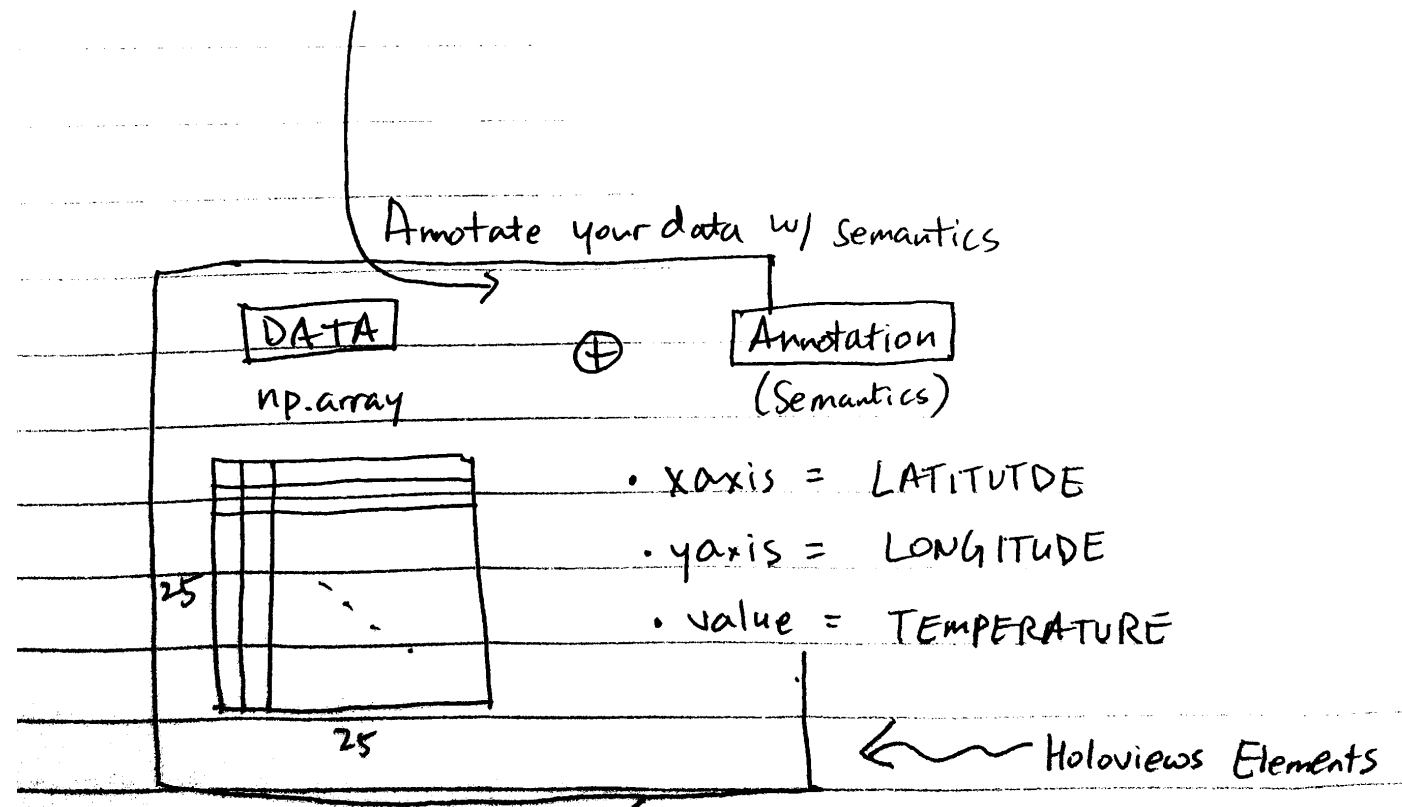 Annotate your data w/ semantics
DATA
Annotation
np.array
(Semantics)
• xaxis = LATITUTDE
• yaxis = LONGITUDE
• value = TEMPERATURE
25
25
Holoviews Elements